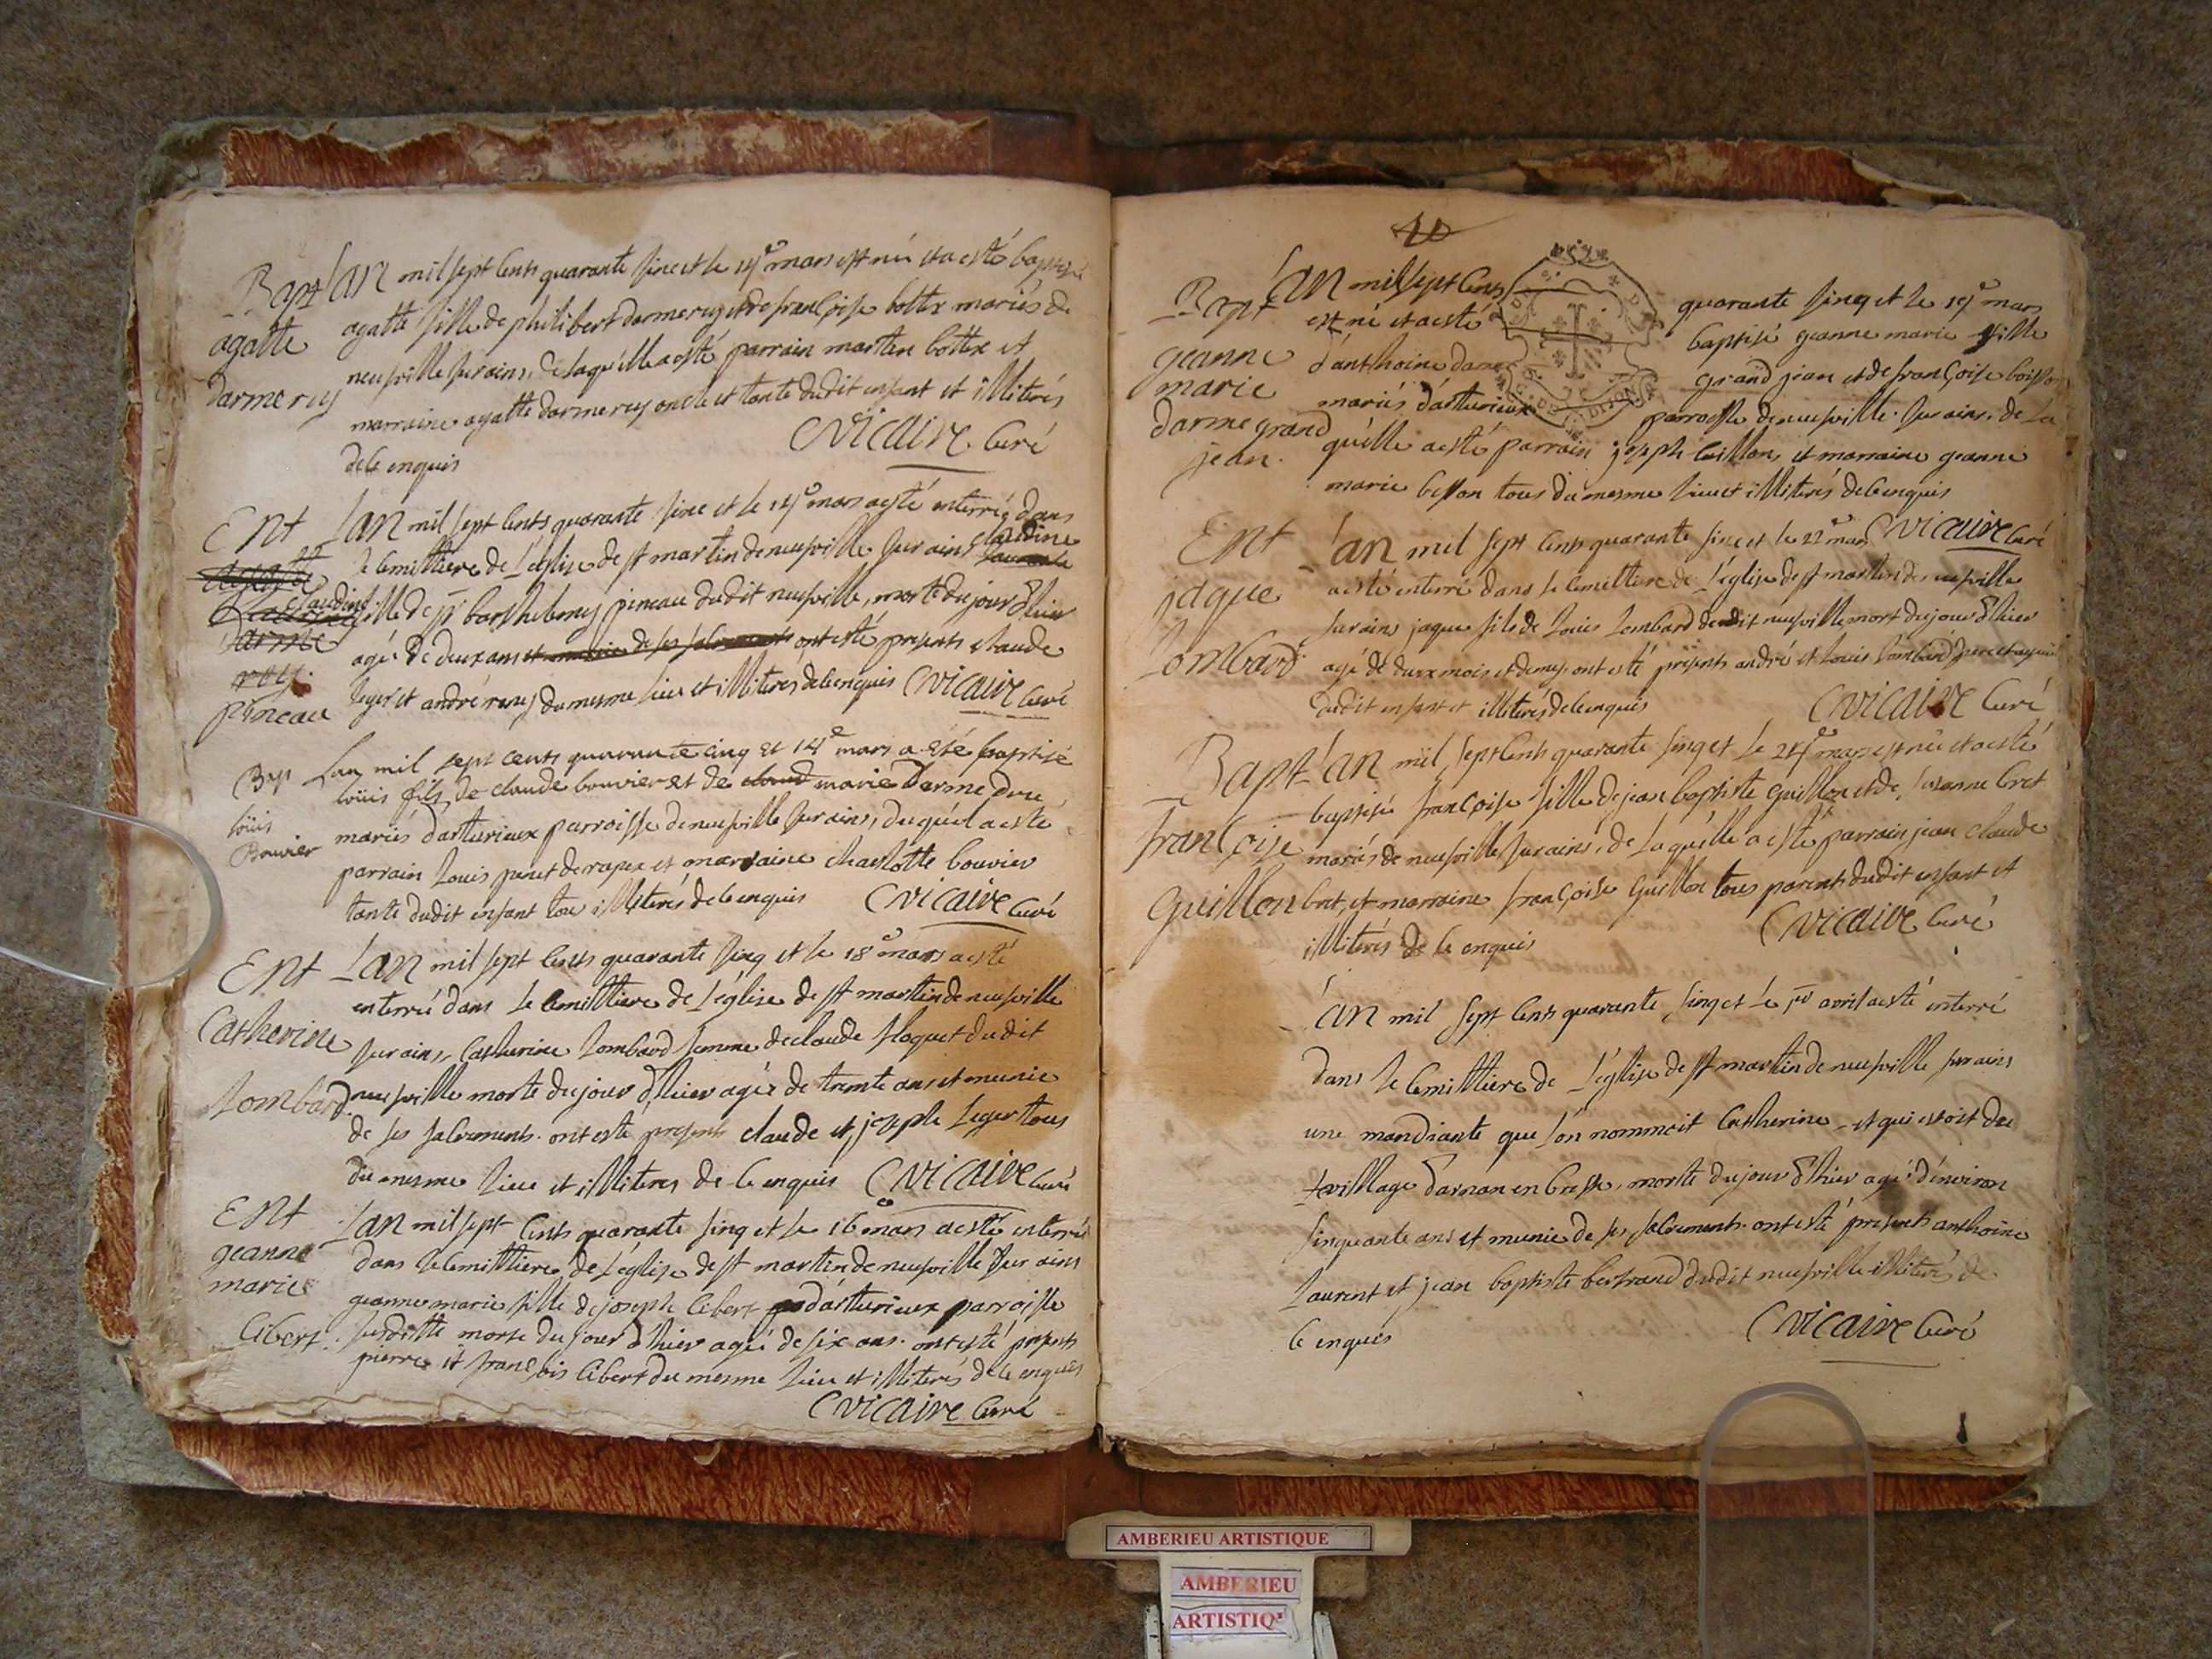 Bapt
agatte
darmerey
Lan mil sept cents quarante sinc et le 14e mars est née et a esté baptisée
agatte fille de philibert darmerey et de françoise bottex mariés de
neufville sur ains, de laquelle a esté parrain martin bottex et
marraine agatte darmerey oncle et tante dudit enfant et illiterés
de ce enquis
Cvicaire Curé
Ent
claudine
darme
rey
pineau
Lan mil sept cents quarante sinc et le 14e mars a esté enterrée dans
le cemittiere de l'église de st martin de neufville sur ains claudine
fille de barthelemy pineau dudit neufville, morte du jour d'hier
agée de deux ans et munie de ses sacrements ont esté presents claude
leger et andré rerey du mesme lieu et illiteres de ce enquis Cvicaire Curé
Bap
loüis
Bouvier
Lan mil sept cents quarante cinq et 14e mars a été baptisé
loüis fils de claude bouvier et de claud marie Darme
mariés dasturieux parroisse de neufville sur ains, duquel a esté
parrain Louis penet de rapex et marraine charlotte bouvier
tante dudit enfant tous illiterés de ce enquis Cvicaire Curé
Ent
Catherine
Lombard
Lan mil sept cents quarante sinq et le 18e mars a esté
enterrée dans le cemittiere de l'église de st martin de neufville
sur ains, Catherine Lombard femme de claude floquet dudit
neufville morte du jour d'hier agée de trente ans et munie
de ses sacrements. ont esté presents claude et joseph Leger tous
du mesme lieu et illiteres de ce enquis Cvicaire Curé
Ent
geanne
marie
Cibert
Lan mil sept cents quarante sinq et le 16e mars a esté enterrée
dans le cemittiere de l'église de st martin de neufville sur ains
geanne marie fille de joseph Cibert d'asturieux parroisse
susditte morte du jour d'hier agée de six ans. ont esté presents
pierre et françois Cibert du mesme lieu et illiterés de ce enquis
Cvicaire Curé
20
Bapt
geanne
marie
darme grand
jean.
Lan mil sept cents quarante sinq et le 19e mars
est né et a esté baptisé geanne marie fille
d'anthoine darme grand jean et de françoise
mariés d'asturieux parroisse de neufville sur ains. de la
quelle a esté parrain joseph Cuillon, et marraine geanne
marie besson tous du mesme lieu et illiterés de ce enquis
Cvicaire Curé
Ent
jaque
Lombard
Lan mil sept cents quarante sinc et le 22e mars
a esté enterré dans le cemittiere de l'église de st martin de neufville
sur ains jaque fils de Louis Lombard dudit neufville mort du jour d'hier
agé de deux mois et demy. ont esté presents andré et Louis Lombard pere et ayeul
dudit enfant et illiterés de ce enquis
Cvicaire Curé
Bapt
françoise
Guillon
Lan mil sept cents quarante sinq et le 24e mars est née et a esté
baptisée françoise fille de jean baptiste Guillon et de susanne bret
mariés de neufville sur ains, de laquelle a esté parrain jean claude
bret, et marraine françoise Guillon tous parents dudit enfant et
illiterés de ce enquis
Cvicaire Curé
Lan mil sept cents quarante sinq et le 1er avril a esté enterré
dans le cemittiere de l'église de st martin de neufville sur ains
une mandiante que l'on nommoit Catherine et qui estoit du
village d'arnan en bresse, morte du jour d'hier agée d'environ
sinquante ans et munie de ses sacrements. ont esté presents anthoine
Laurent et jean baptiste bertrand dudit neufville illiterés de
ce enquis
Cvicaire Curé
AMBERIEU ARTISTIQUE
AMBERIEU
ARTISTIQ